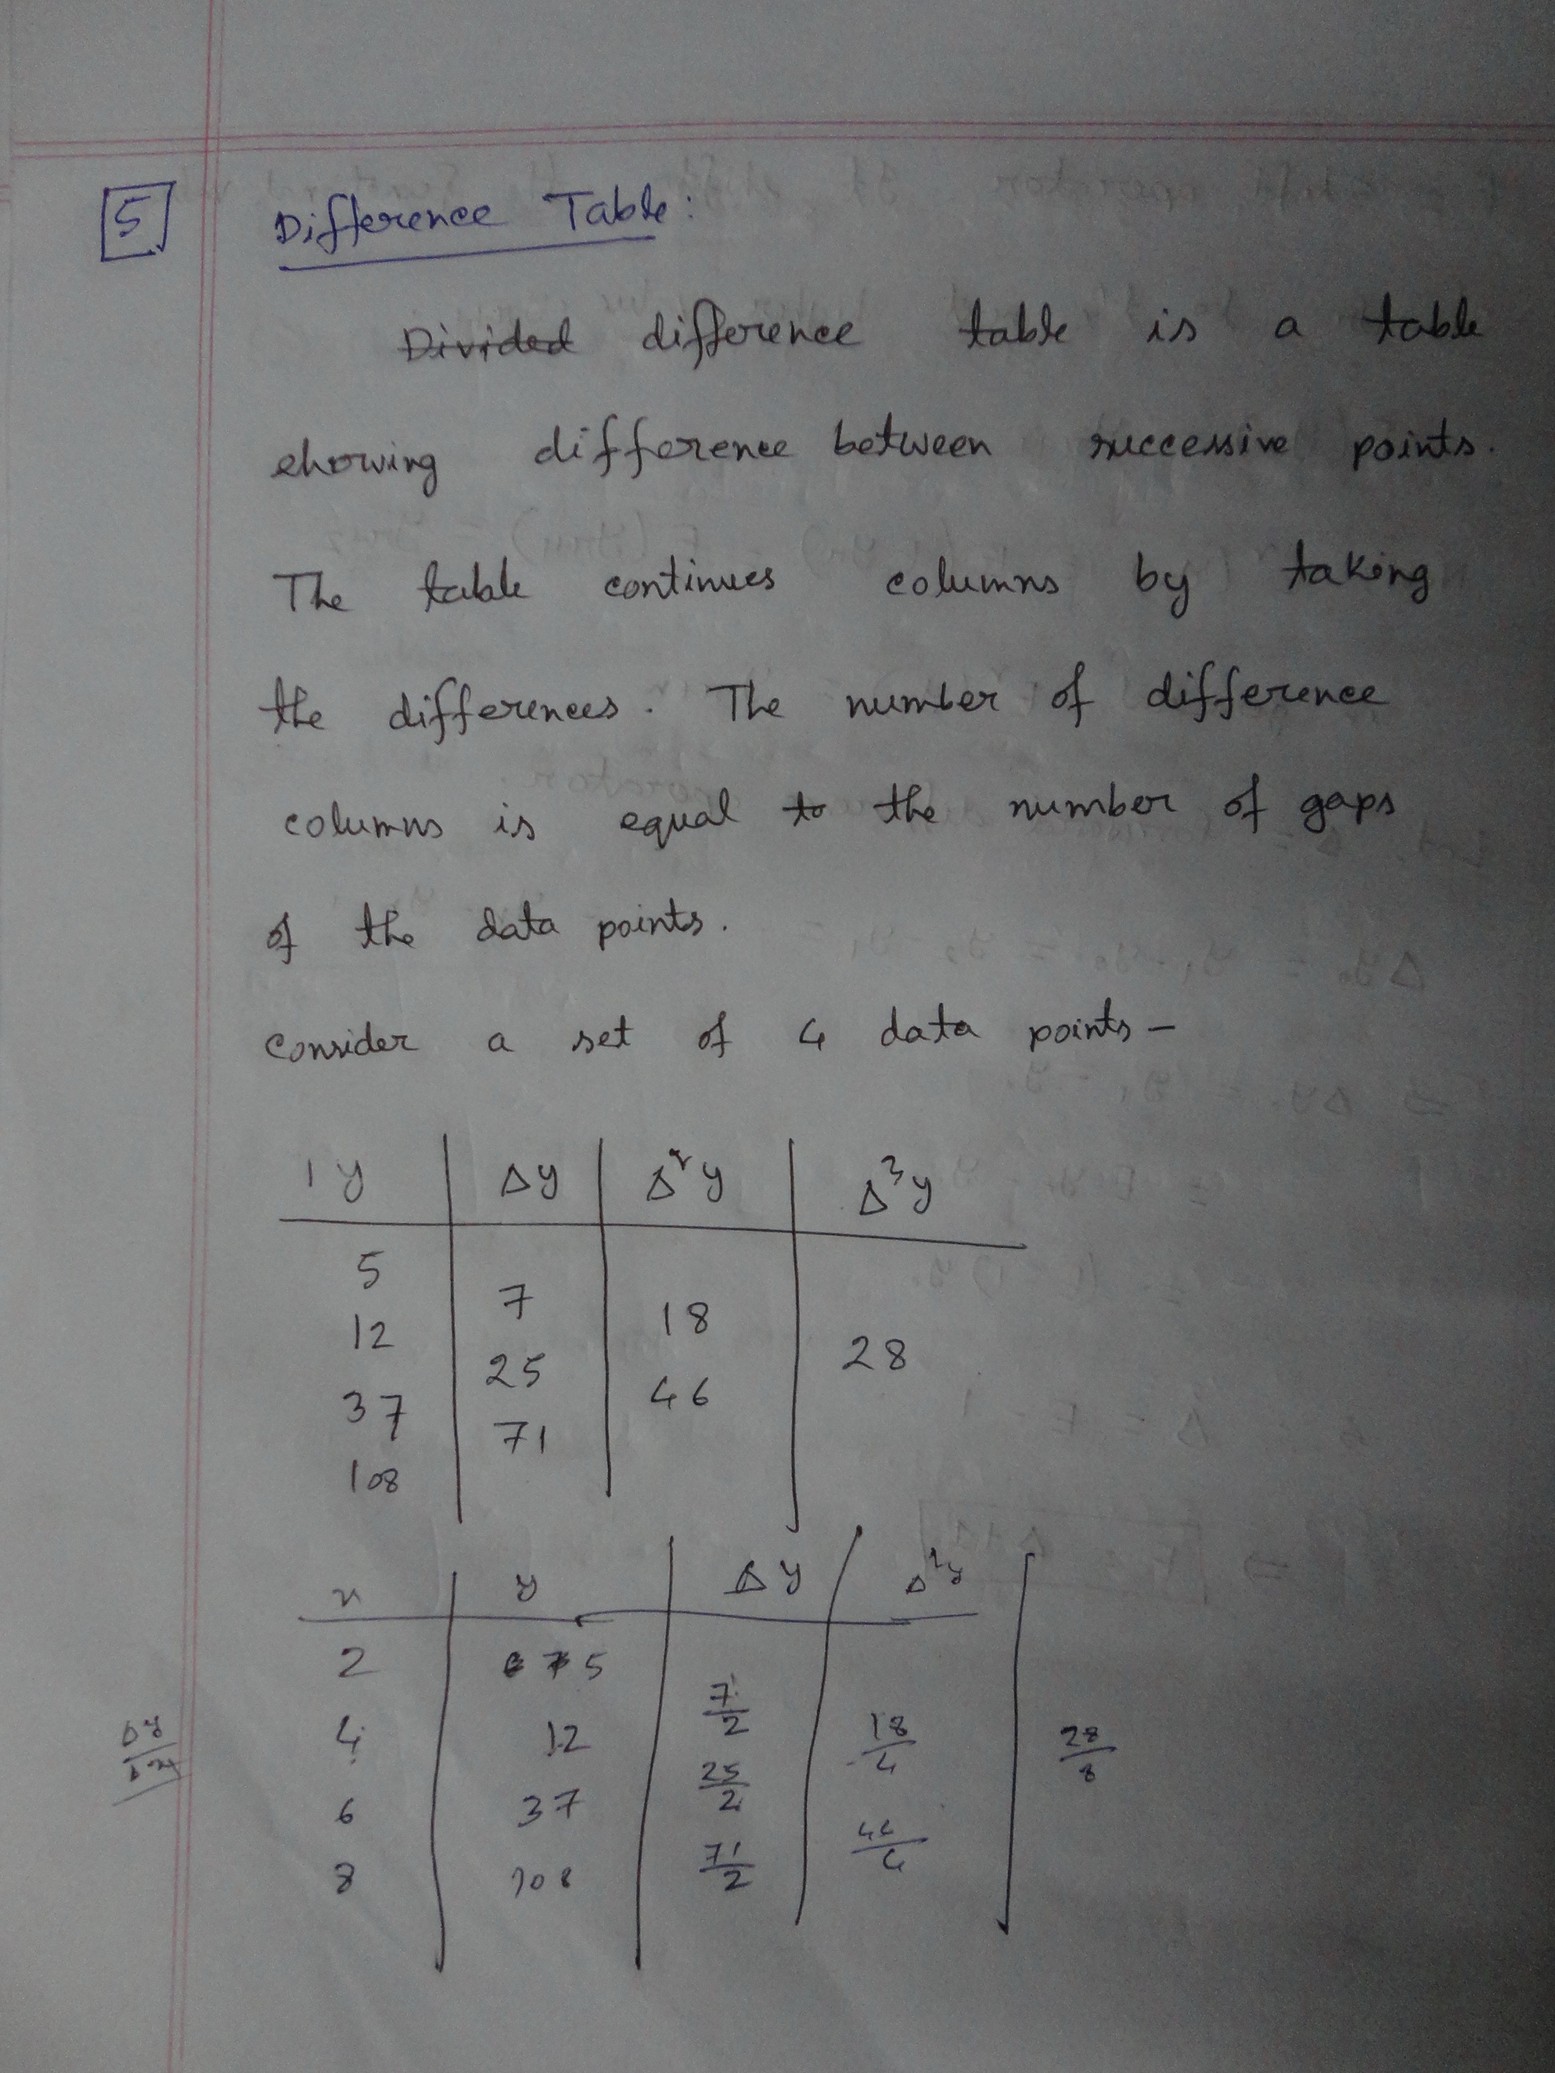 5 Difference Table:
Divided difference table is a table
showing difference between successive points.
The table continues columns by taking
the differences. The number of difference
columns is equal to the number of gaps
of the data points.
Consider a set of 4 data points -
y Δy Δ²y Δ³y
5
7
12 18
25 28
37 46
71
108
x y Δy Δ²y
2 5
7/2
4 12 18/4
25/2 28/8
6 37 46/4
71/2
8 108
Δy/Δx